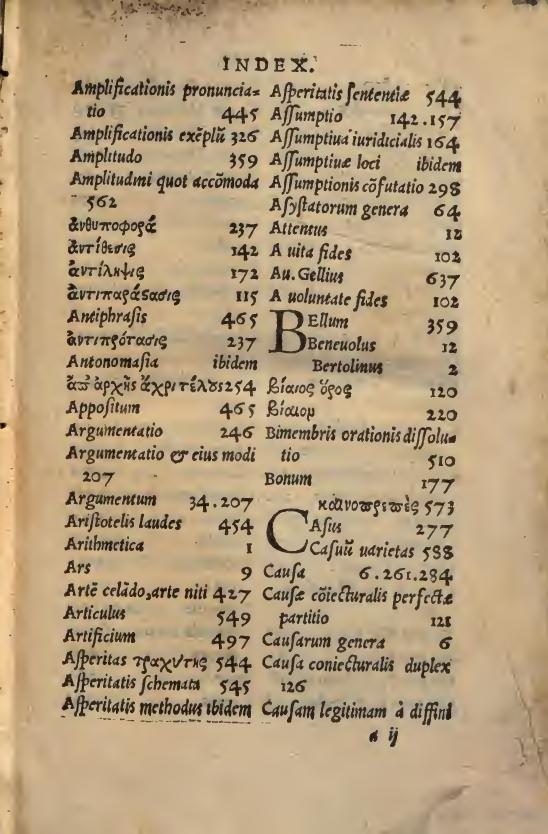 INDEX.
Amplificationis pronuncia=
tio 445
Amplificationis exẽplũ 326
Amplitudo 359
Amplitudini quot accõmoda
562
ἀνθυποφορά 237
ἀντίθεσις 142
ἀντίληψις 172
ἀντιπαράστασις 115
Antiphrasis 465
ἀντιπρότασις 237
Antonomasia ibidem
ἀπ' ἀρχῆς ἄχρι τέλους 254
Appositum 465
Argumentatio 246
Argumentatio & eius modi
207
Argumentum 34.207
Aristotelis laudes 454
Arithmetica 1
Ars 9
Artẽ celãdo, arte niti 427
Articulus 549
Artificium 497
Asperitas τραχύτης 544
Asperitatis schemata 545
Asperitatis methodus ibidem
Asperitatis sententiæ 544
Assumptio 142.157
Assumptiua iuridicialis 164
Assumptiuæ loci ibidem
Assumptionis cõfutatio 298
Asystatorum genera 64
Attentus 12
A uita fides 102
Au. Gellius 637
A uoluntate fides 102
BEllum 359
Beneuolus 12
Bertolinus 2
βίαιος ὅρος 120
βίαιον 220
Bimembris orationis dissolu=
tio 510
Bonum 177
καινοπρεπὲς 573
CAsus 277
Casuũ uarietas 588
Causa 6.261.284
Causæ cõiecturalis perfectæ
partitio 121
Causarum genera 6
Causa coniecturalis duplex
126
Causam legitimam à diffini
a ij